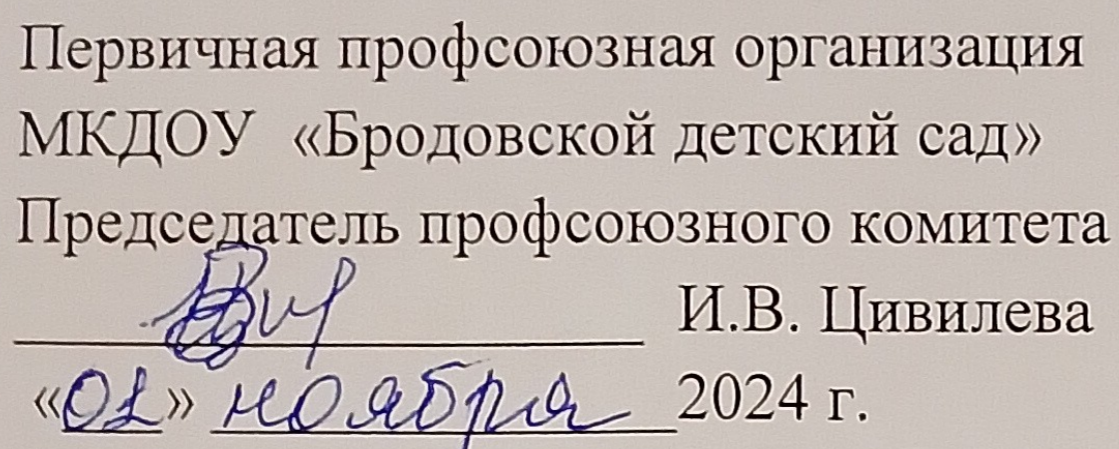 Первичная профсоюзная организация
МКДОУ «Бродовской детский сад»
Председатель профсоюзного комитета
И.В. Цивилева
«01» ноября 2024 г.